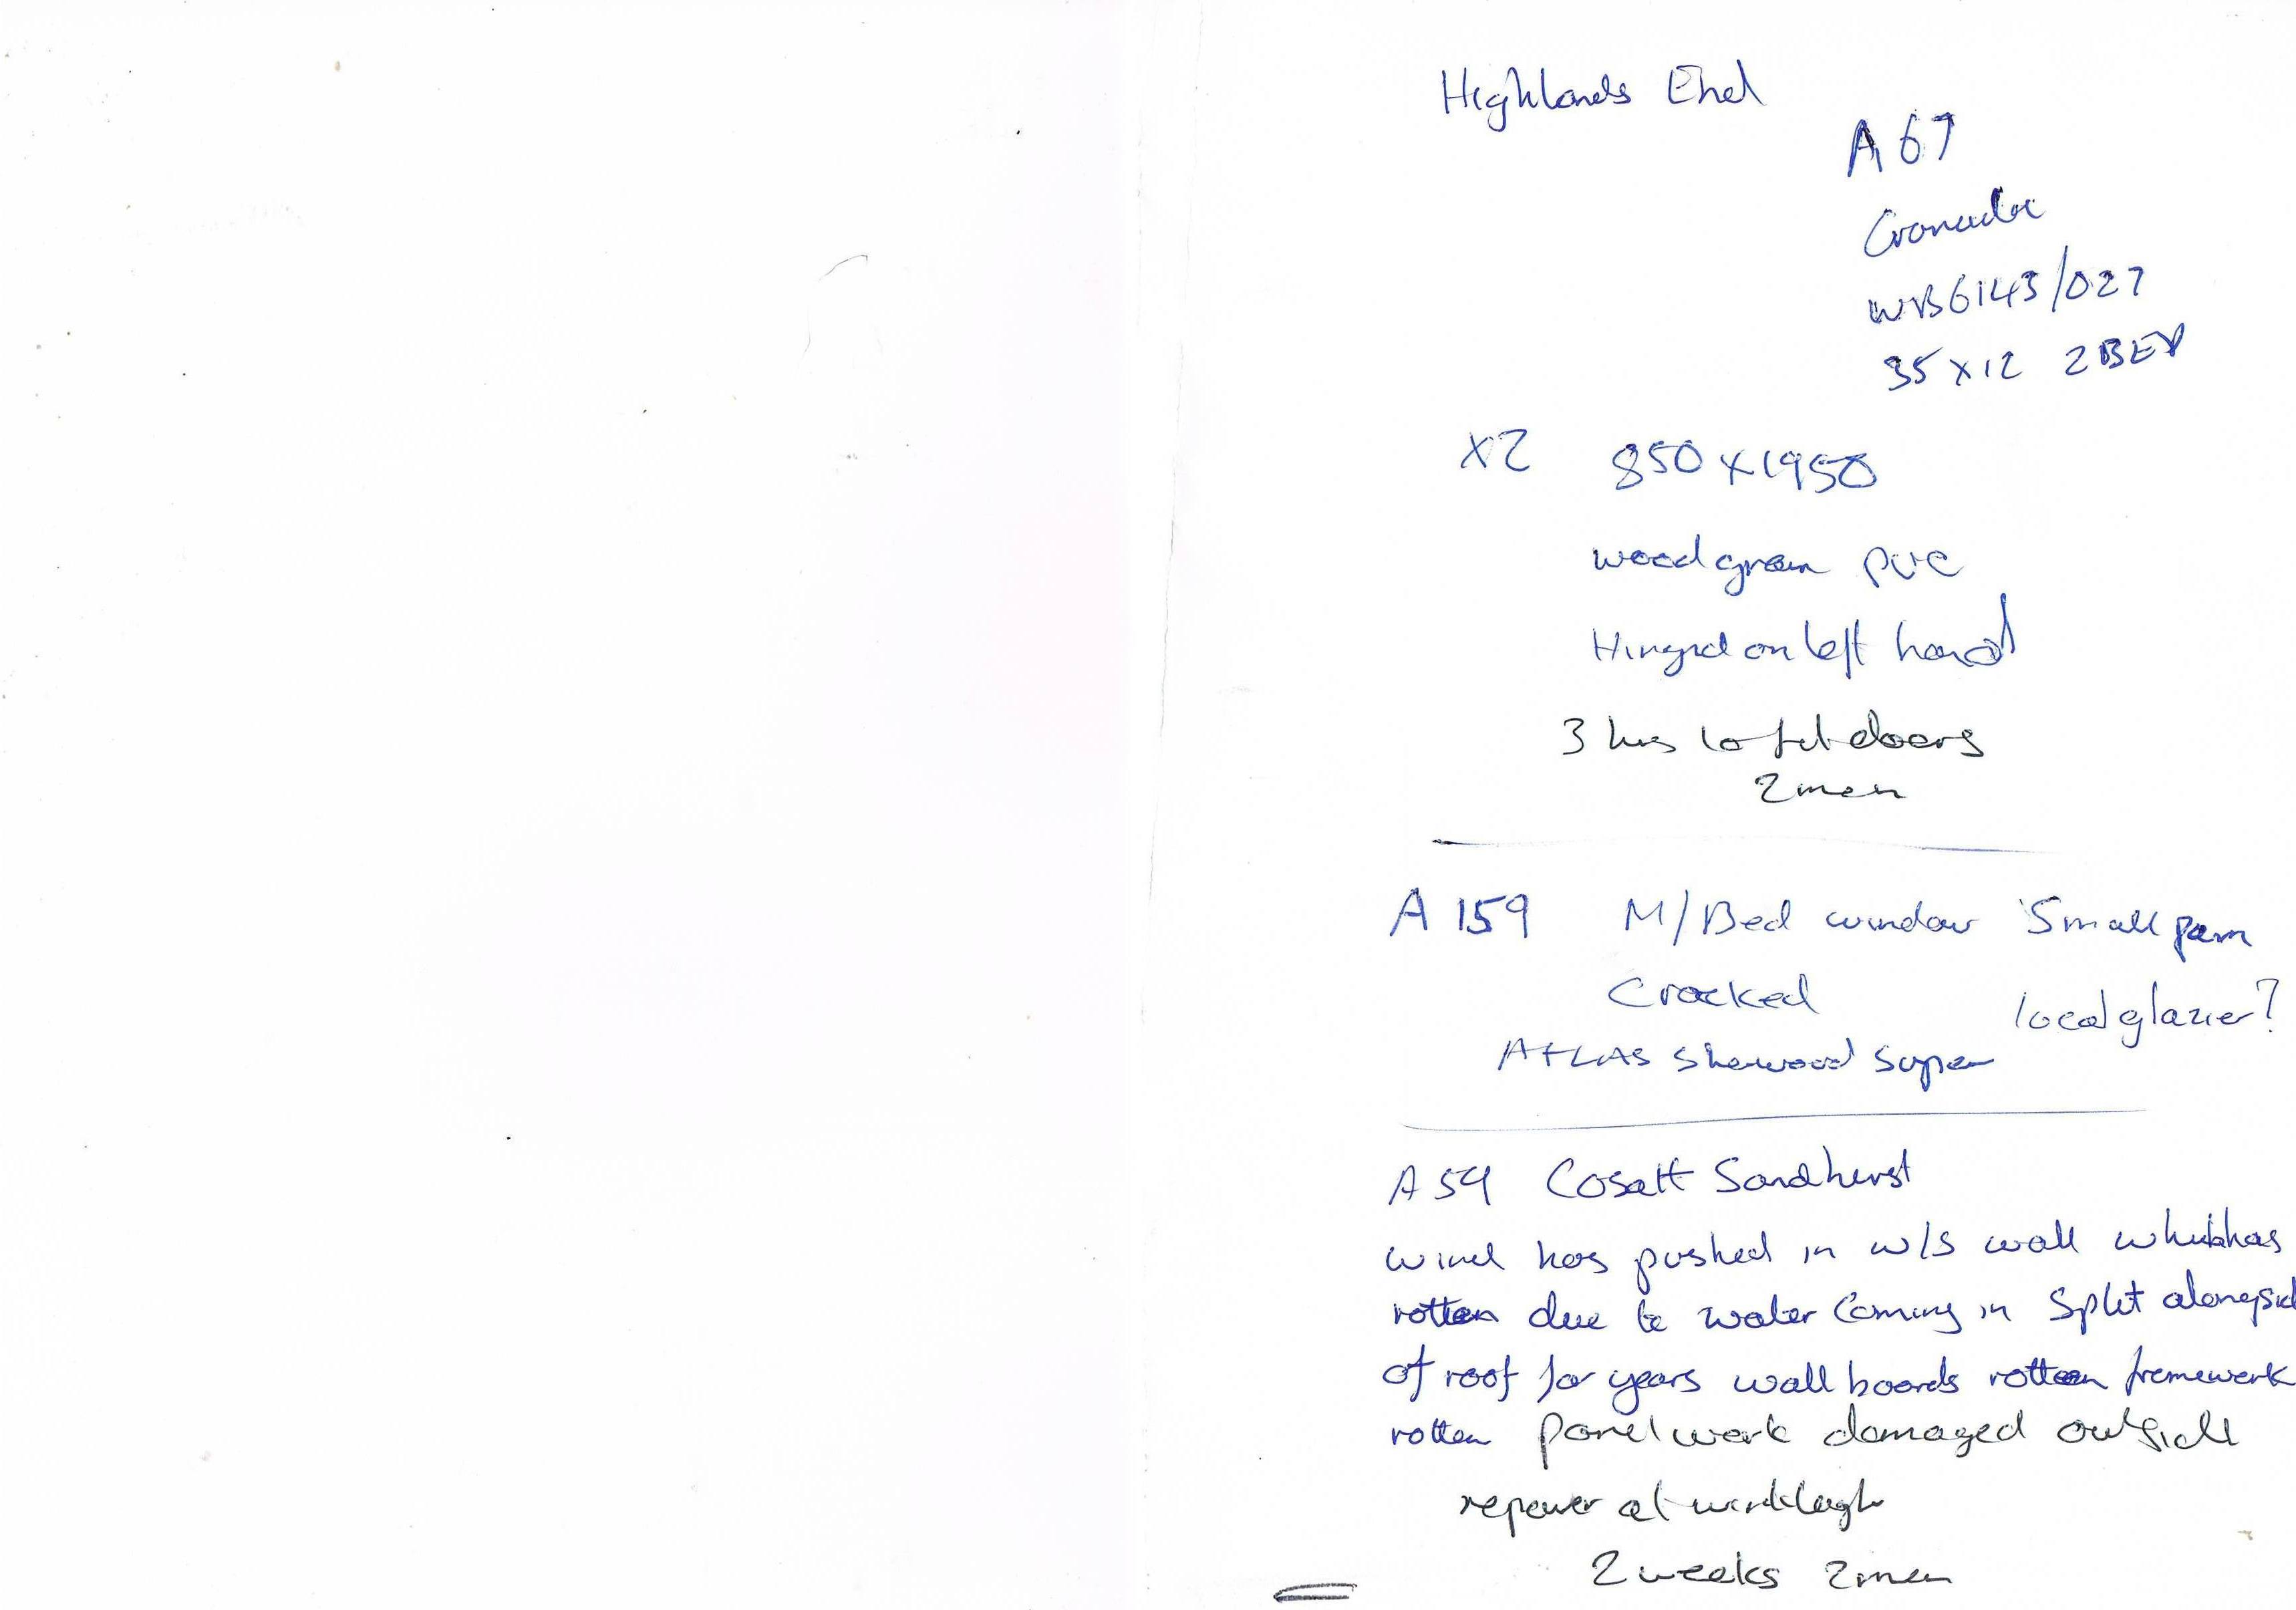 Highlands End
A 67
WB6143/027
35 x 12 2 BED
x2 850 x 1950
woodgrain pvc
Hinged on left hand
3 hrs to fit doors
2 men
A 159 M/Bed window Small pain
Cracked local glazier?
ATLAS Sherwood Super
A 59 Cosalt Sandhurst
wind has pushed in w/s wall which has
rotten due to water coming in split alongsid
of roof for years wall boards rotten framework
rotten panel work damaged outside
at winkleigh
2 weeks 2 men